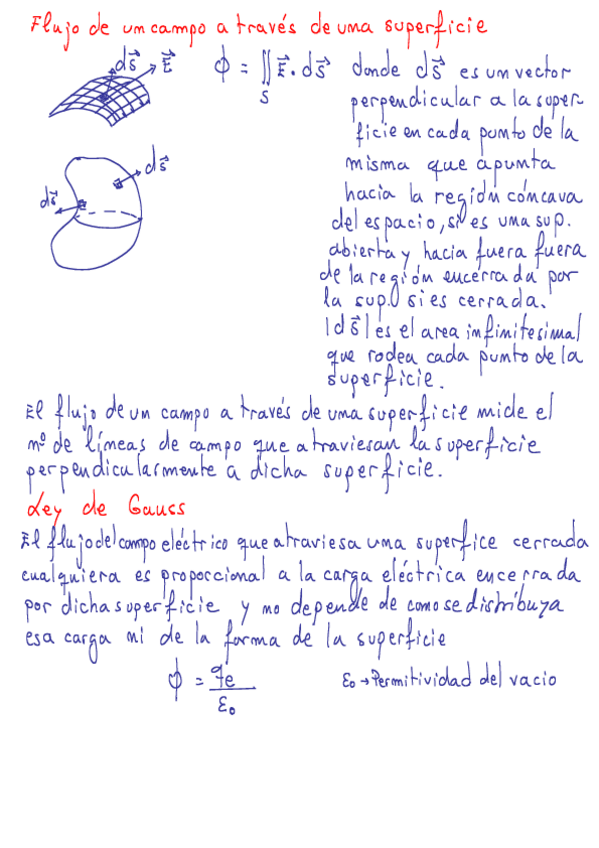 Flujo de un campo a través de una superficie
ds⃗ E⃗ ϕ = ∬ E⃗ . ds⃗ donde ds⃗ es un vector
S perpendicular a la super-
ficie en cada punto de la
ds⃗ misma que apunta
ds⃗ hacia la región cóncava
del espacio, si es una sup.
abierta y hacia fuera fuera
de la región encerrada por
la sup. si es cerrada.
|ds⃗| es el area infinitesimal
que rodea cada punto de la
superficie.
El flujo de un campo a través de una superficie mide el
nº de líneas de campo que atraviesan la superficie
perpendicularmente a dicha superficie.
Ley de Gauss
El flujo del campo eléctrico que atraviesa una superfice cerrada
cualquiera es proporcional a la carga eléctrica encerrada
por dicha superficie y no depende de como se distribuya
esa carga ni de la forma de la superficie
ϕ = qe / ε₀ ε₀ → Permitividad del vacio